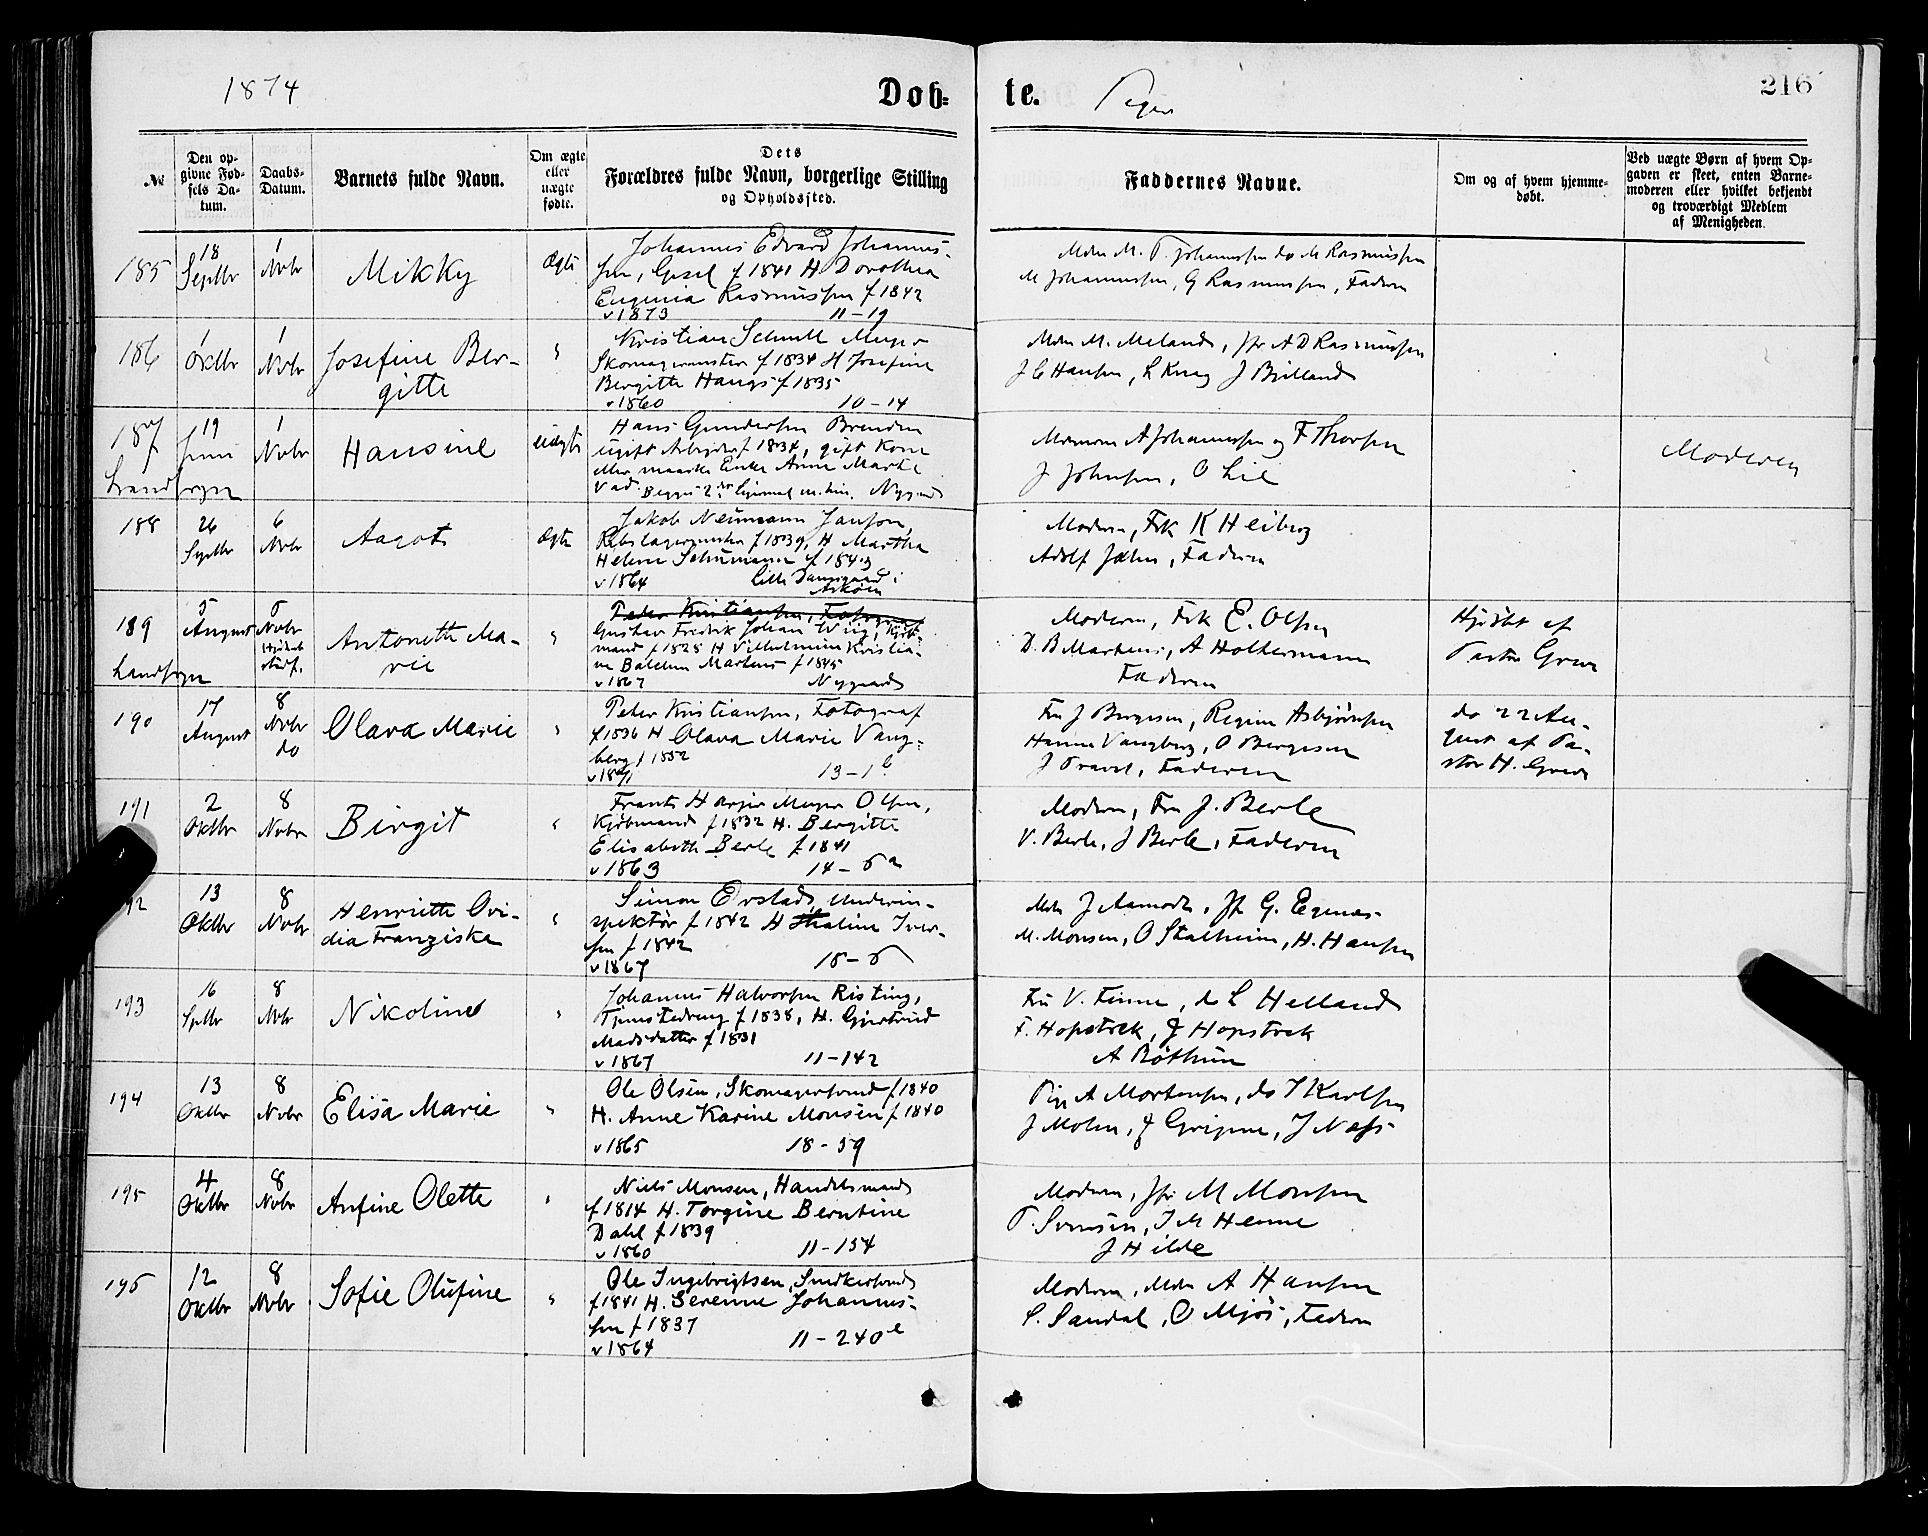 1874
Döb=
te.
Piger
216
№
Den op-
givne Fød-
sels Da-
tum.
Daabs-
Datum.
Barnets fulde Navn.
Om ægte
eller
uægte
fødte.
Dets
Forældres fulde Navn, borgerlige Stilling
og Opholdssted.
Faddernes Navne.
Om og af hvem hjemme-
døbt.
Ved uægte Børn af hvem Op-
gaven er skeet, enten Barne-
moderen eller hvilket bekjendt
og troværdigt Medlem
af Menigheden.
185
18
Septbr
1
Nvbr
Mikky
Ægte
Johannes Edvard Johannes-
sen, f 1841 H Dorothea
Eugenia Rasmussen f 1842
v 1873 11-19
Mdm M. T. Johannessen do M Rasmussen
M Johannessen, G Rasmussen, Faderen
186
Oktbr
1
Nvbr
Josefine Ber-
gitte
"
Kristian Schmell Meyer
Skomagermester f 1834 H Josefine
Bergitte Haugs f 1835
v 1860 10-14
Mdm M. Meland, Jfr A D Rasmussen
J C Hansen, L Krug J Birkeland
187
19
Juni
1
Nvbr
Hansine
Uægte
Landsogn
Hans Gundersen Brenden
ugift Arbejder f 1834, gift Kone
eller maaske Enke Anne Marte
Vad. Begges 2det Nygaard
A Johannessen og F Thorsen
J Johnsen, O Lie
Moderen
188
26
Septbr
6
Nvbr
Aagot
Ægte
Jakob Neumann Janson,
Rebslagermester f 1839, H Martha
Helene Schumann f 1843
v 1864 Lille Damsgaard i
Askøen
Moderen, Frk K Heiberg
Adolf Jahn, Faderen
189
5
August
Nvbr
Antonette Ma-
rie
"
Landsogn
Peter Kristiansen, Fotograf
Gustav Fredrik Johan Wiig, Kjøb-
mand f 1828 H Vilhelmine Kristia-
ne Balchen Martens f 1845
v 1867 Nygaard
Moderen, Frk E. Olsen
D. B Martens, A Holtermann
Faderen
Hjdøbt af
Pastor Greve
190
17
August
8
Nvbr
do
Olava Marie
"
Peter Kristiansen, Fotograf
f 1836 H Olava Marie Vang-
berg f 1852
v 1871 13-1b
Fru J Bergesen, Regine Asbjørnsen
Hanna Vangberg, O Bergesen
J Travel, Faderen
do 22 Au-
gust af Pa-
stor H. Greve
191
2
Oktbr
8
Nvbr
Birgit
"
Frantz Meyer Olsen,
Kjöbmand f 1832 H. Bergitte
Elisabeth Berle f 1841
v 1863 14-6a
Moderen, Fru J. Berle
V. Berle, J Berle, Faderen
92
13
Oktbr
8
Nvbr
Henriette Ovi-
dia Franziska
"
Simon Evstad, Underin-
spektør f 1842 H Thaline Iver-
sen f 1842
v 1867 18-6
Mdm J Aamodt, Jfr G. Egenæs-
M. Monsen, O Stalheim, H. Hansen
193
16
Sptbr
8
Nvbr
Nikoline
"
Johannes Halvorsen Risting,
Tjenstedreng f 1838, H. Gjertrud
Madsdatter f 1831
v 1867 11-142
Fru V. Finne, do L Helland
F. Hopstock, J Hopstock
A Röthun
194
13
Oktbr
8
Nvbr
Elisa Marie
"
Ole Olsen, Skomagersvend f 1840
H. Anne Karine Monsen f 1840
v 1865 18-39
Pige A Mortensen, do J Karlsen
J Molm, J Gripne, J Næss
195
4
Oktbr
8
Nvbr
Anfine Olette
"
Niels Monsen, Handelsmand
f 1814 H. Torgine Berntine
Dahl f 1839
v 1860 11-154
Moderen, Jfr M Monsen
T. Svensen, J M Henne
J Hilde
195
12
Oktbr
8
Nvbr
Sofie Olufine
"
Ole Ingebrigtsen, Snedkersvend
f 1841 H. Serenne Johannes-
sen f 1837
v 1864 11-240e
Moderen, Mdm A Hansen
S. Sandal, O Mjös, Faderen